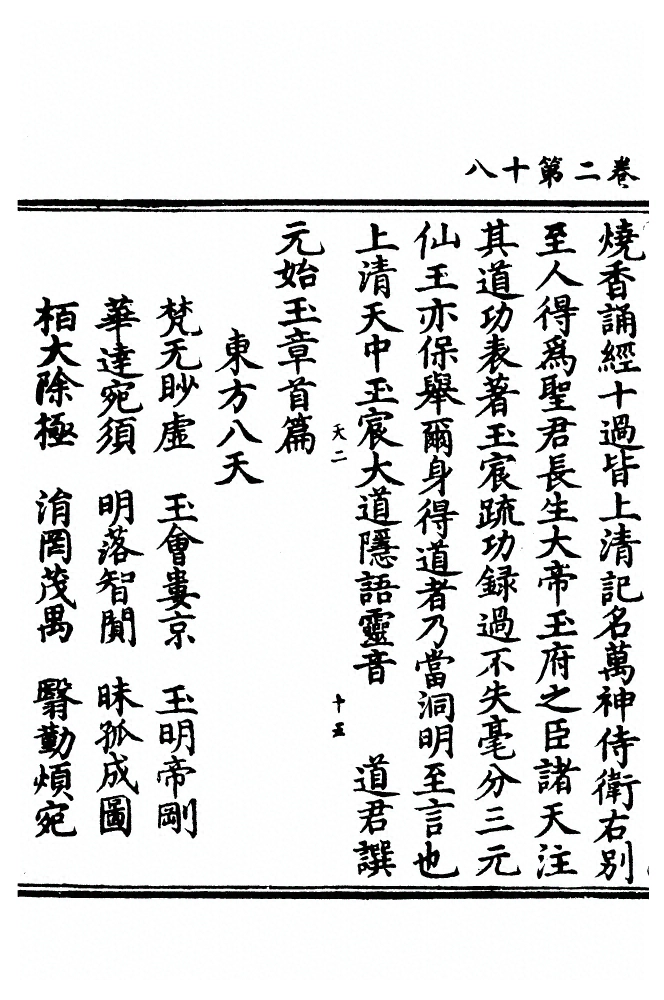 卷二第十八
燒香誦經十過皆上清記名萬神侍衛右別
至人得爲聖君長生大帝玉府之臣諸天注
其道功表著玉宸疏功録過不失毫分三元
仙王亦保舉爾身得道者乃當洞明至言也
上清天中玉宸大道隱語靈音 道君譔
天二 十五
元始玉章首篇
東方八天
梵无眇虛 玉會婁京 玉明帝剛
華達宛須 明落智閴 昧孤成圖
栢大除極 洧罔茂禺 翳勤煩宛